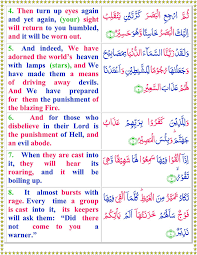 4. Then turn up eyes again
and yet again, (your) sight
will return to you humbled,
and it will be worn out.
ثُمَّ ارْجِعِ الْبَصَرَ كَرَّتَيْنِ يَنْقَلِبْ
إِلَيْكَ الْبَصَرُ خَاسِئًا وَهُوَ حَسِيرٌ
5. And indeed, We have
adorned the world's heaven
with lamps (stars), and We
have made them a means
of driving away devils.
And We have prepared
for them the punishment of
the blazing Fire.
وَلَقَدْ زَيَّنَّا السَّمَاءَ الدُّنْيَا بِمَصَابِيحَ
وَجَعَلْنَاهَا رُجُومًا لِلشَّيَاطِينِ وَأَعْتَدْنَا
لَهُمْ عَذَابَ السَّعِيرِ
6. And for those who
disbelieve in their Lord is
the punishment of Hell, and
an evil abode.
وَلِلَّذِينَ كَفَرُوا بِرَبِّهِمْ عَذَابُ
جَهَنَّمَ وَبِئْسَ الْمَصِيرُ
7. When they are cast into
it, they will hear its
roaring, and it will be
boiling up.
إِذَا أُلْقُوا فِيهَا سَمِعُوا لَهَا شَهِيقًا وَهِيَ
تَفُورُ
8. It almost bursts with
rage. Every time a group
is cast into it, its keepers
will ask them: “Did there
not come to you a
warner.”
تَكَادُ تَمَيَّزُ مِنَ الْغَيْظِ كُلَّمَا أُلْقِيَ فِيهَا
فَوْجٌ سَأَلَهُمْ خَزَنَتُهَا أَلَمْ يَأْتِكُمْ
نَذِيرٌ